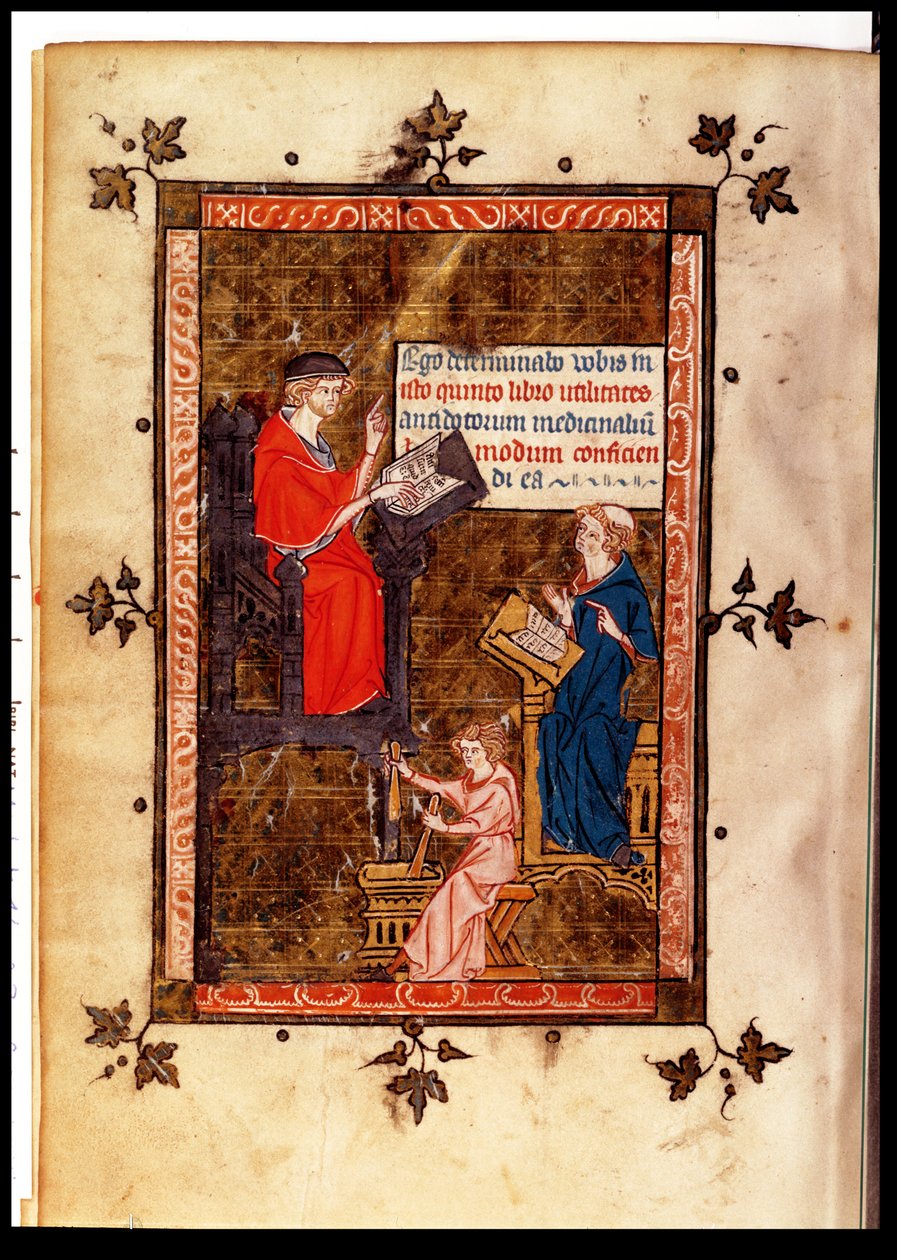 Ego determinabo vobis in
isto quinto libro utilitates
antidotorum medicinaliū
modum conficien
di ea